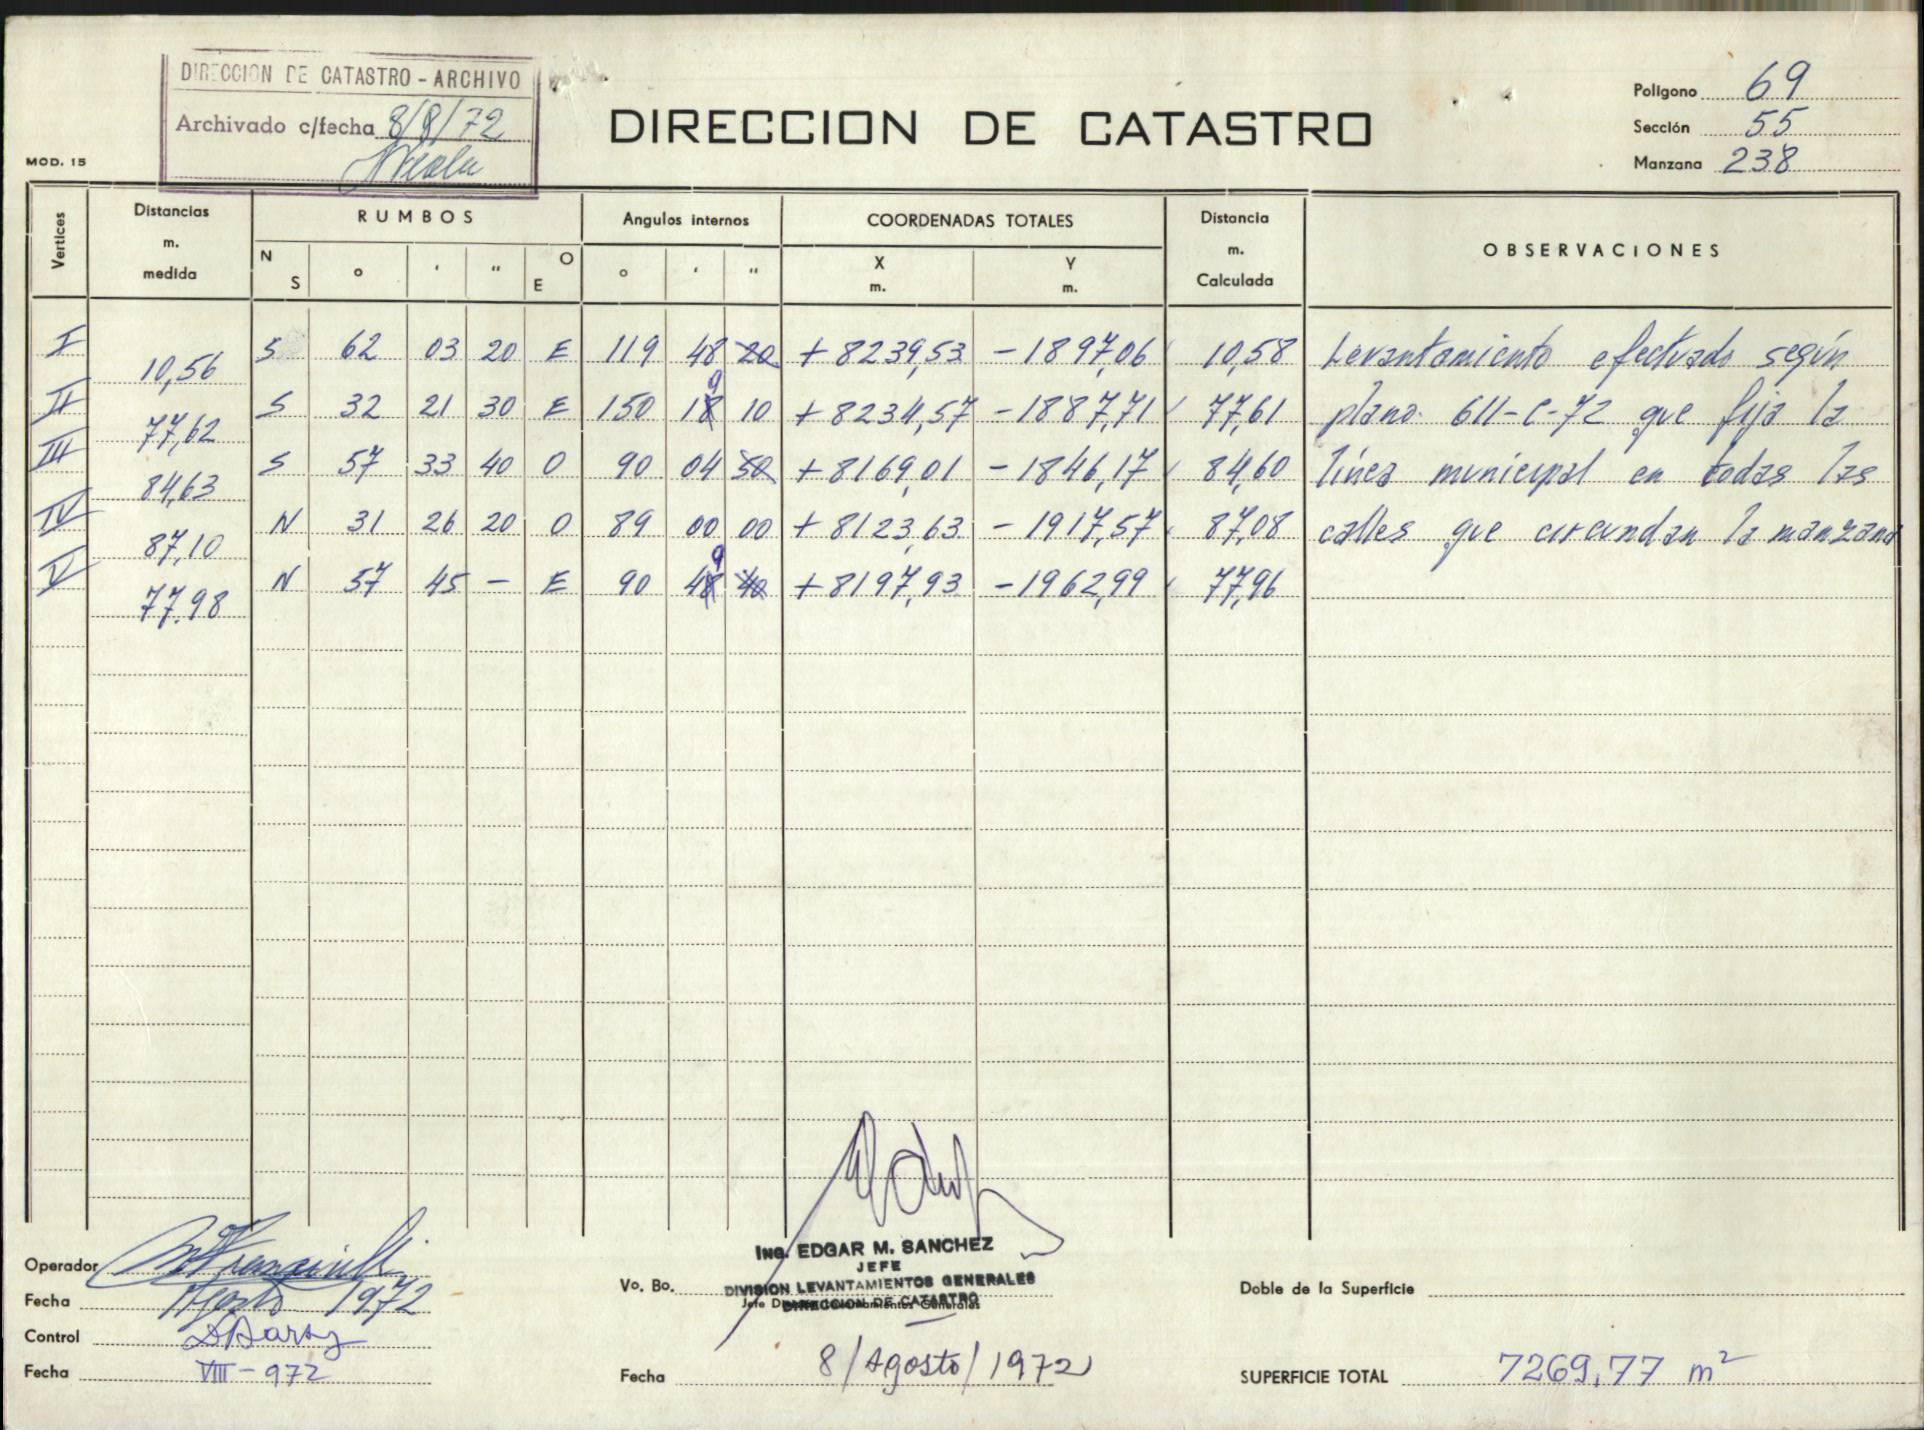 DIRECCION DE CATASTRO - ARCHIVO
Archivado c/fecha 8/8/72
MOD. 15
DIRECCION DE CATASTRO
Polígono 69
Sección 55
Manzana 238
Vertices Distancias m. medida RUMBOS N S o ' " O E Angulos internos o ' " COORDENADAS TOTALES X m. Y m. Distancia m. Calculada OBSERVACIONES
I S 62 03 20 E 119 48 20 + 8239,53 - 1897,06 10,58 Levantamiento efectuado según
10,56
II S 32 21 30 E 150 18 9 10 + 8234,57 - 1887,71 77,61 plano 611-C-72 que fija la
77,62
III S 57 33 40 O 90 04 50 + 8169,01 - 1846,17 84,60 línea municipal en todas las
84,63
IV N 31 26 20 O 89 00 00 + 8123,63 - 1917,57 87,08 calles que circundan la manzana
87,10
V N 57 45 - E 90 48 9 40 + 8197,93 - 1962,99 77,96
77,98
Operador
Fecha Agosto 1972
Control
Fecha VIII - 972
Vo. Bo.
Ing. EDGAR M. SANCHEZ
JEFE
DIVISION LEVANTAMIENTOS GENERALES
DIRECCION DE CATASTRO
Fecha 8/Agosto/1972
Doble de la Superficie
SUPERFICIE TOTAL 7269,77 m²